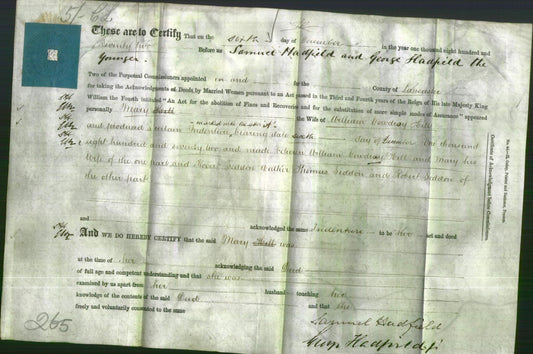 These are to Certify That on the sixth day of December in the year one thousand eight hundred and
seventy two Before us Samuel Hadfield and George Hadfield the
Younger
Two of the Perpetual Commissioners appointed in and for the County of Lancaster
for taking the Acknowledgments of Deeds by Married Women pursuant to an Act passed in the Third and Fourth years of the Reign of His late Majesty King
William the Fourth intituled "An Act for the abolition of Fines and Recoveries and for the substitution of more simple modes of Assurance" appeared
personally Mary the Wife of William
and produced a certain Indenture marked
bearing date sixth day of December One thousand
eight hundred and seventy two and made between William and Mary his
Wife of the one part and Thomas Seddon and Robert Seddon of
the other part
and acknowledged the same Indenture to be her act and deed
And WE DO HEREBY CERTIFY that the said Mary was
at the time of her acknowledging the said Deed
of full age and competent understanding and that she was
examined by us apart from her husband touching her
knowledge of the contents of the said Deed and that she
freely and voluntarily consented to the same
Samuel Hadfield
Geo Hadfield Jr
265
Certificate of Acknowledgment before Commissioners.